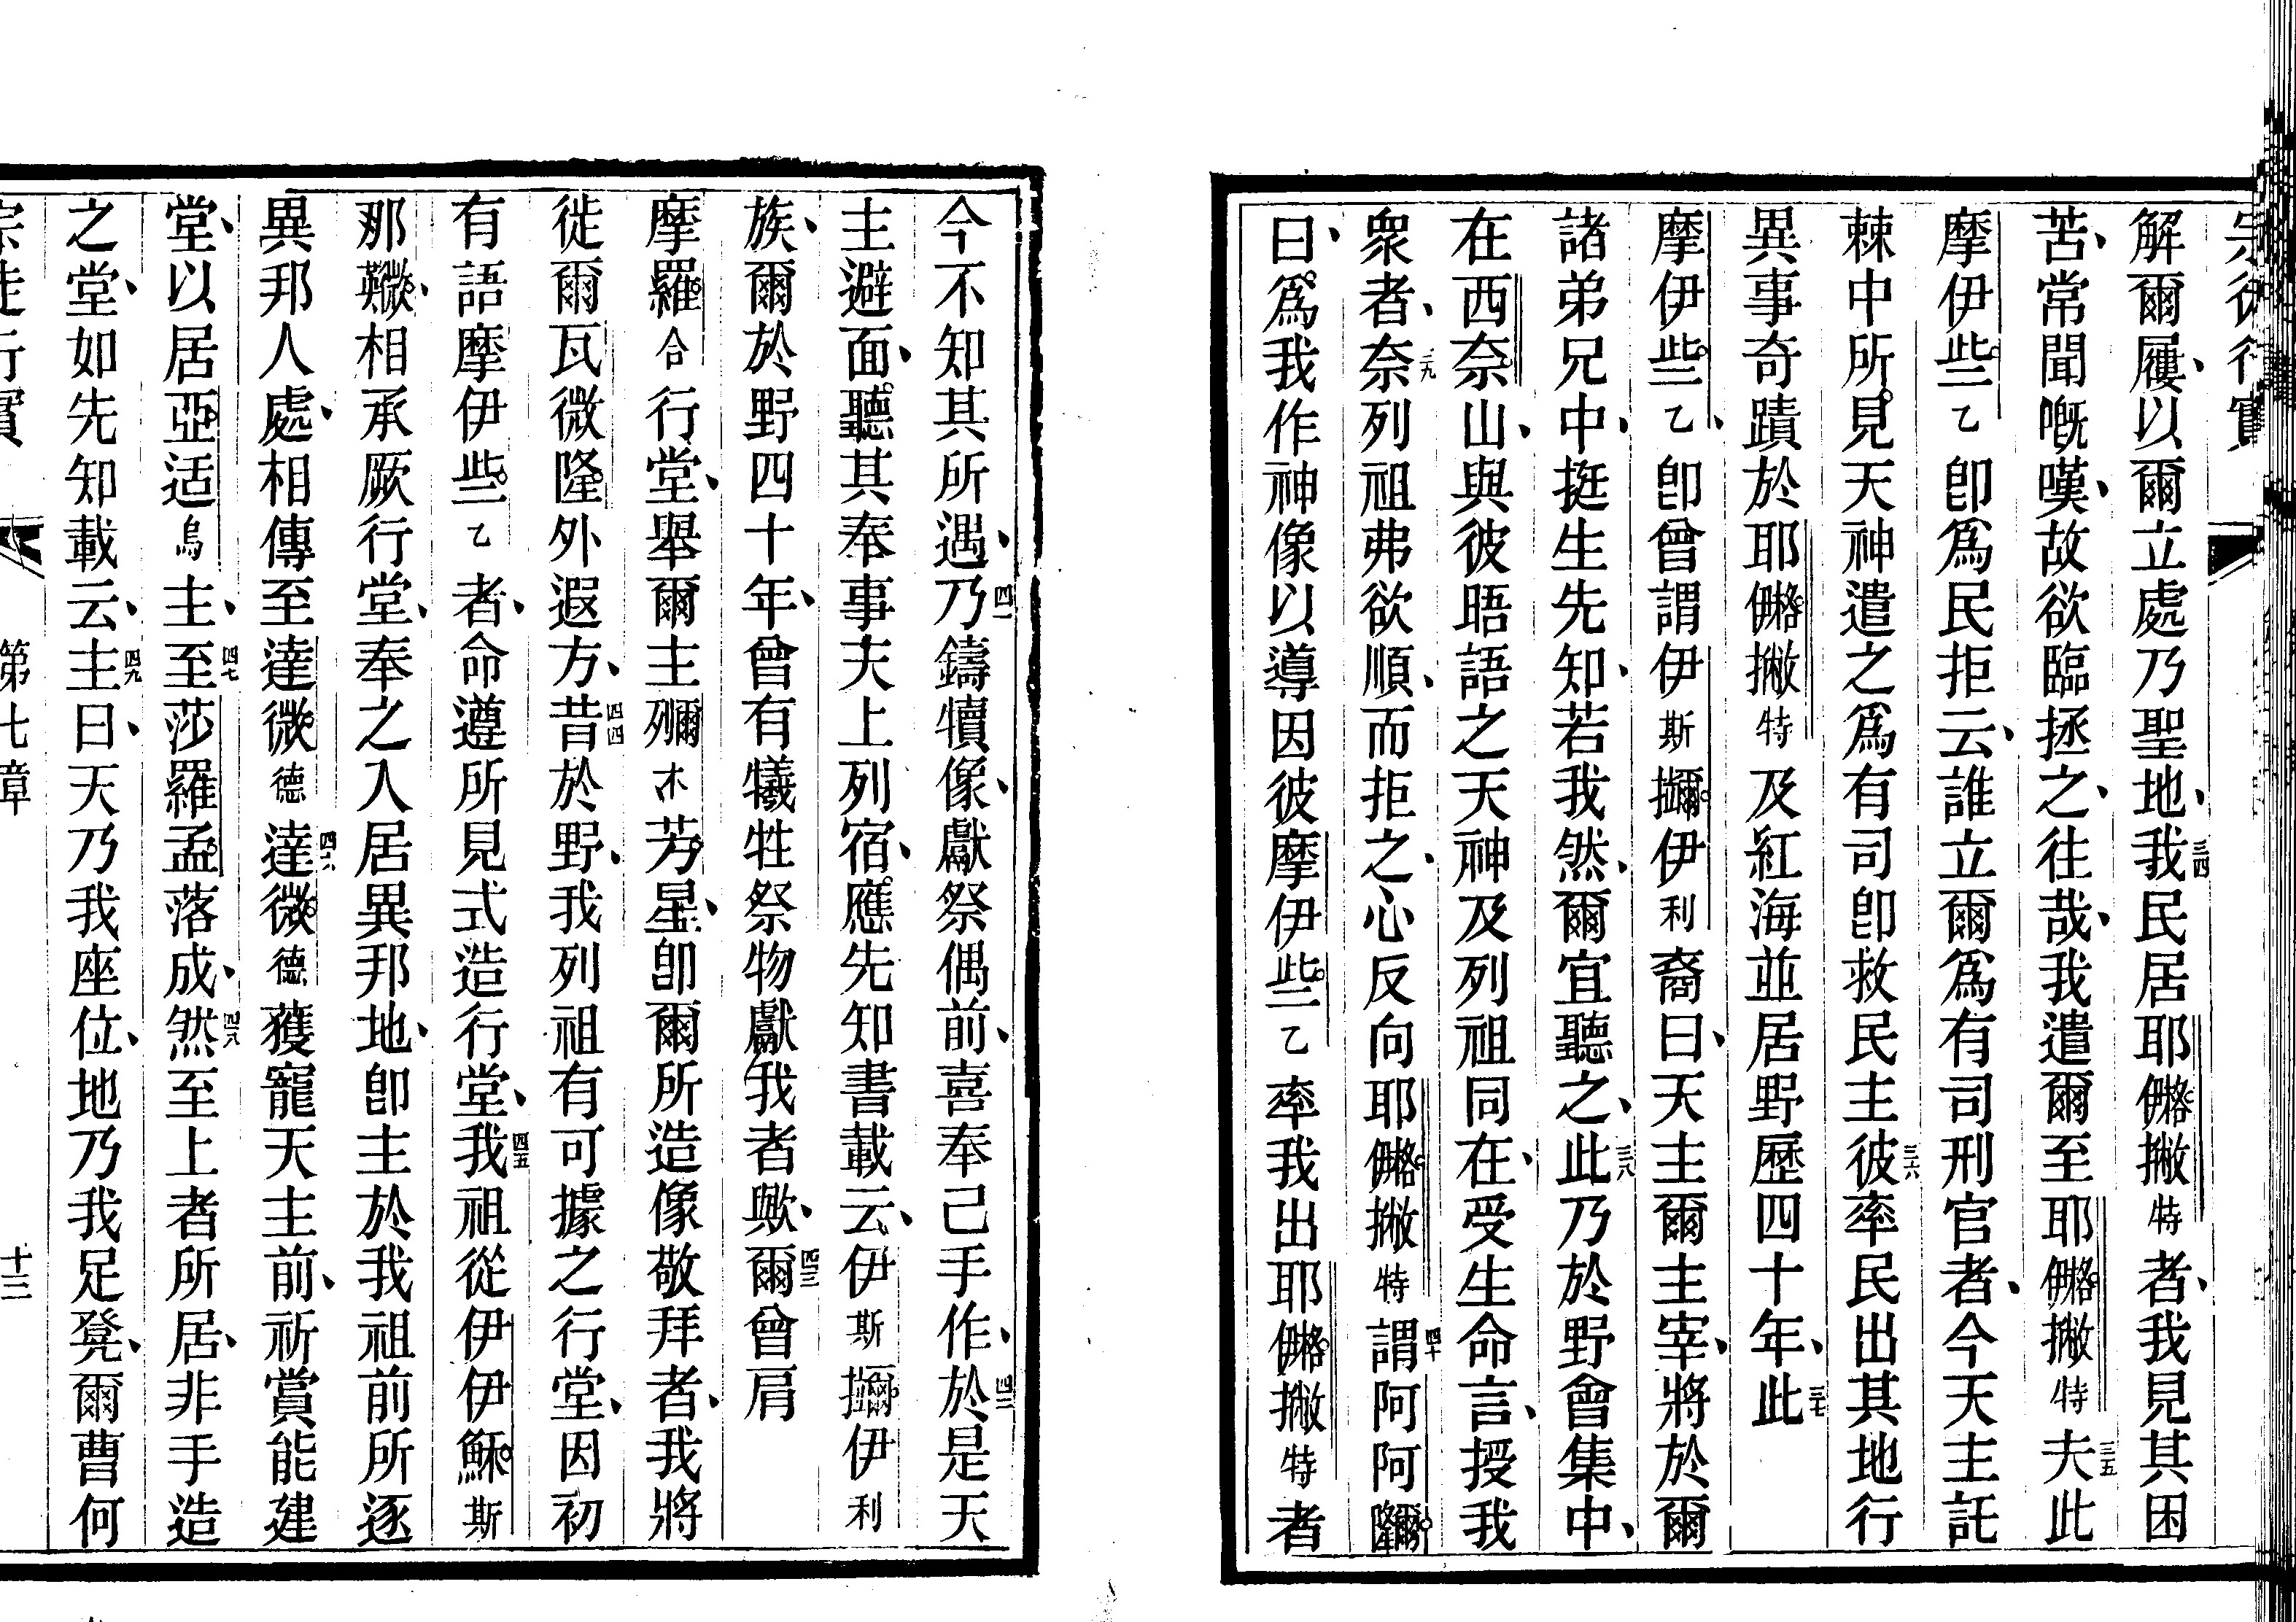 宗徒行實
解爾屨以爾立處乃聖地三四我民居耶撇特者我見其困
苦常聞嘅嘆故欲臨拯之往哉我遣爾至耶撇特三五夫此
摩伊些乙卽爲民拒云誰立爾爲有司刑官者今天主託
棘中所見天神遣之爲有司卽救民主三六彼率民出其地行
異事奇蹟於耶撇特及紅海並居野歷四十年三七此
摩伊些乙卽曾謂伊斯伊利裔曰天主爾主宰將於爾
諸弟兄中挺生先知若我然爾宜聽之三八此乃於野會集中
在西奈山與彼晤語之天神及列祖同在受生命言授我
衆者三九奈列祖弗欲順而拒之心反向耶撇特四十謂阿阿
曰爲我作神像以導因彼摩伊些乙率我出耶撇特者
今不知其所遇四一乃鑄犢像獻祭偶前喜奉己手作四二於是天
主避面聽其奉事天上列宿應先知書載云伊斯伊利
族爾於野四十年曾有犧牲祭物獻我者歟四三爾曾肩
摩羅合行堂舉爾主木芳星卽爾所造像敬拜者我將
徙爾瓦微隆外遐方四四昔於野我列祖有可據之行堂因初
有語摩伊些乙者命遵所見式造行堂四五我祖從伊伊穌斯
那相承厥行堂奉之入居異邦地卽主於我祖前所逐
異邦人處相傳至達微德四六達微德獲寵天主前祈賞能建
堂以居亞适烏主四七至莎羅孟落成四八然至上者所居非手造
之堂如先知載云四九主曰天乃我座位地乃我足凳爾曹何
宗徒行實 第七章 十三